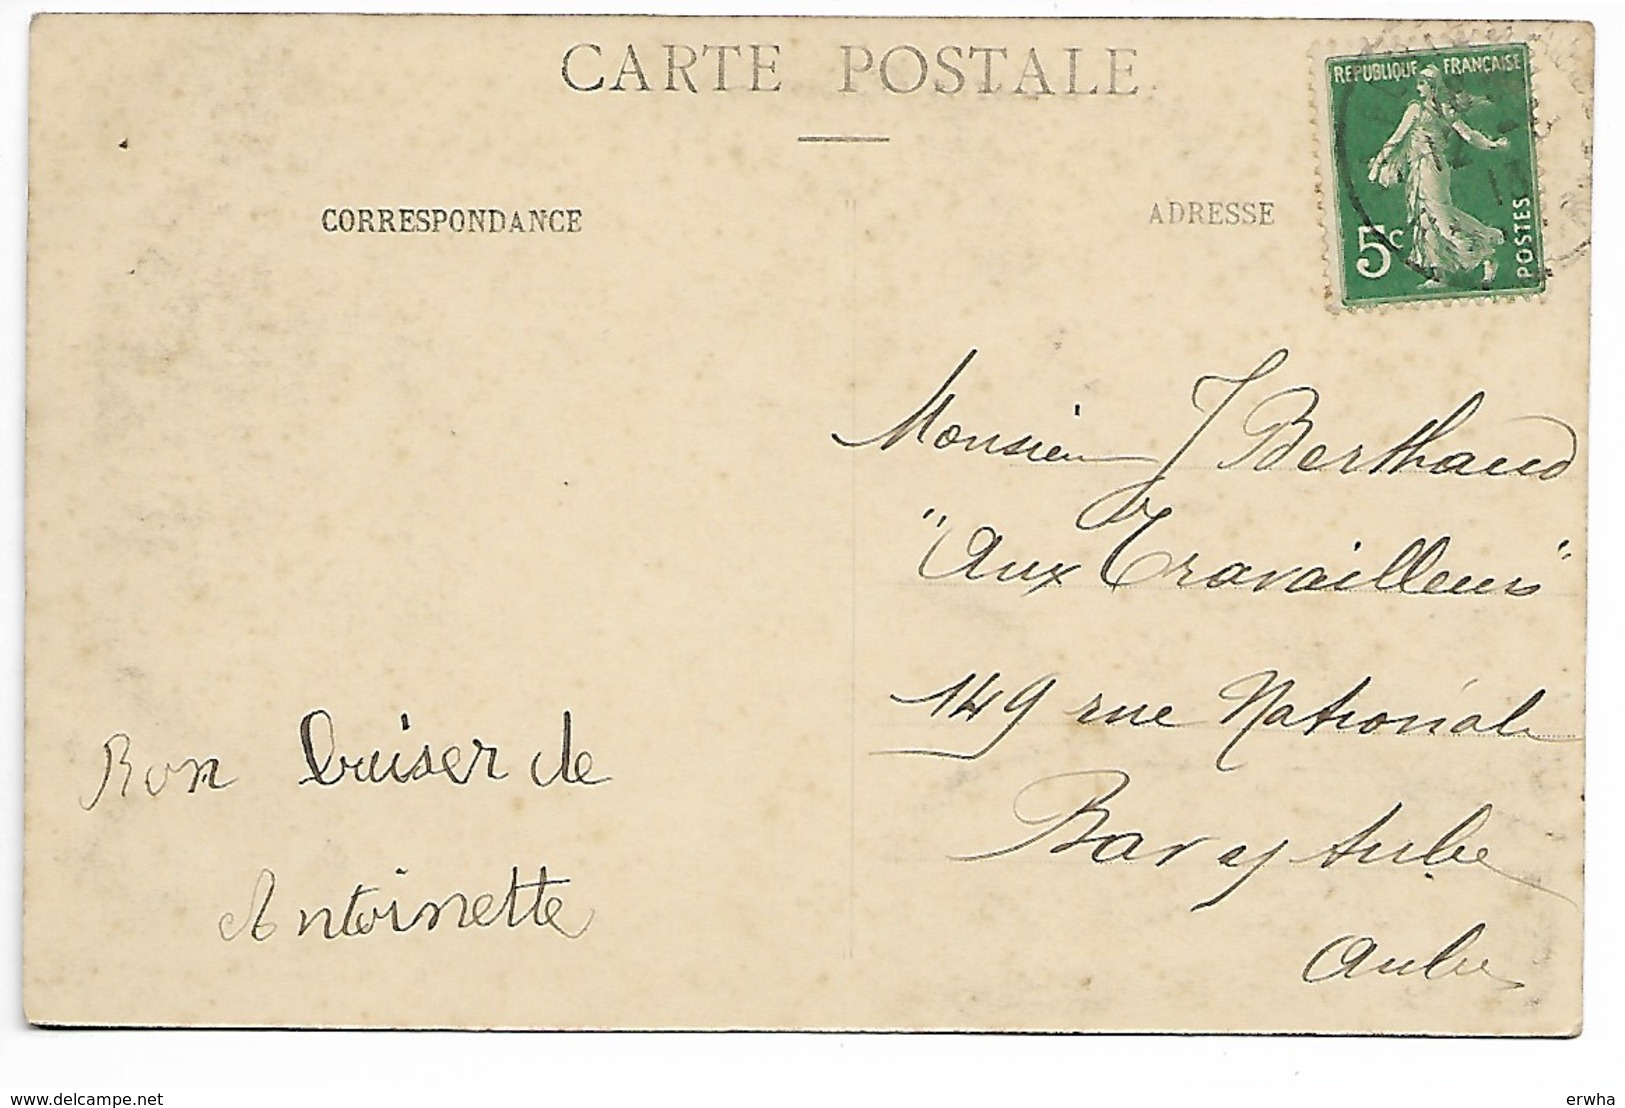 CARTE POSTALE
CORRESPONDANCE
ADRESSE
REPUBLIQUE FRANÇAISE
5c
POSTES
Monsieur J Berthaud
"Aux Travailleurs"
149 rue Nationale
Bar s/ Aube
Aube
Bon baiser de
Antoinette
www.delcampe.net
erwha